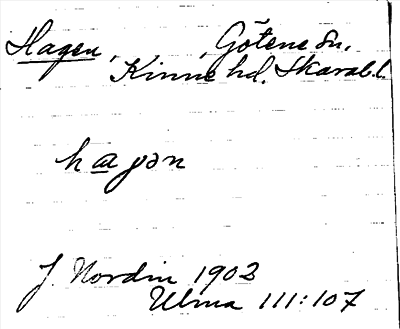 Hagen, , Götene sn.
Kinne hd. Skarab. l.
hagən
J. Nordin 1903
Ulma 111:107